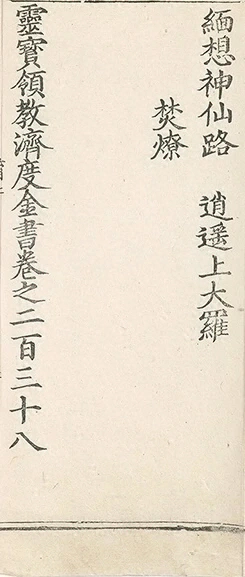 緬想神仙路　逍遥上大羅
焚燎
靈寳領教濟度金書卷之二百三十八